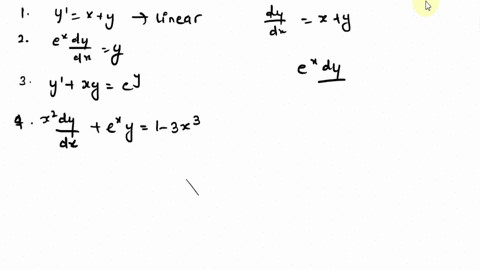 1. y' = x+y → linear
2. e^x dy/dx = y
3. y' + xy = e^y
4. x^2 dy/dx + e^x y = 1-3x^3
dy/dx = x+y
e^x dy